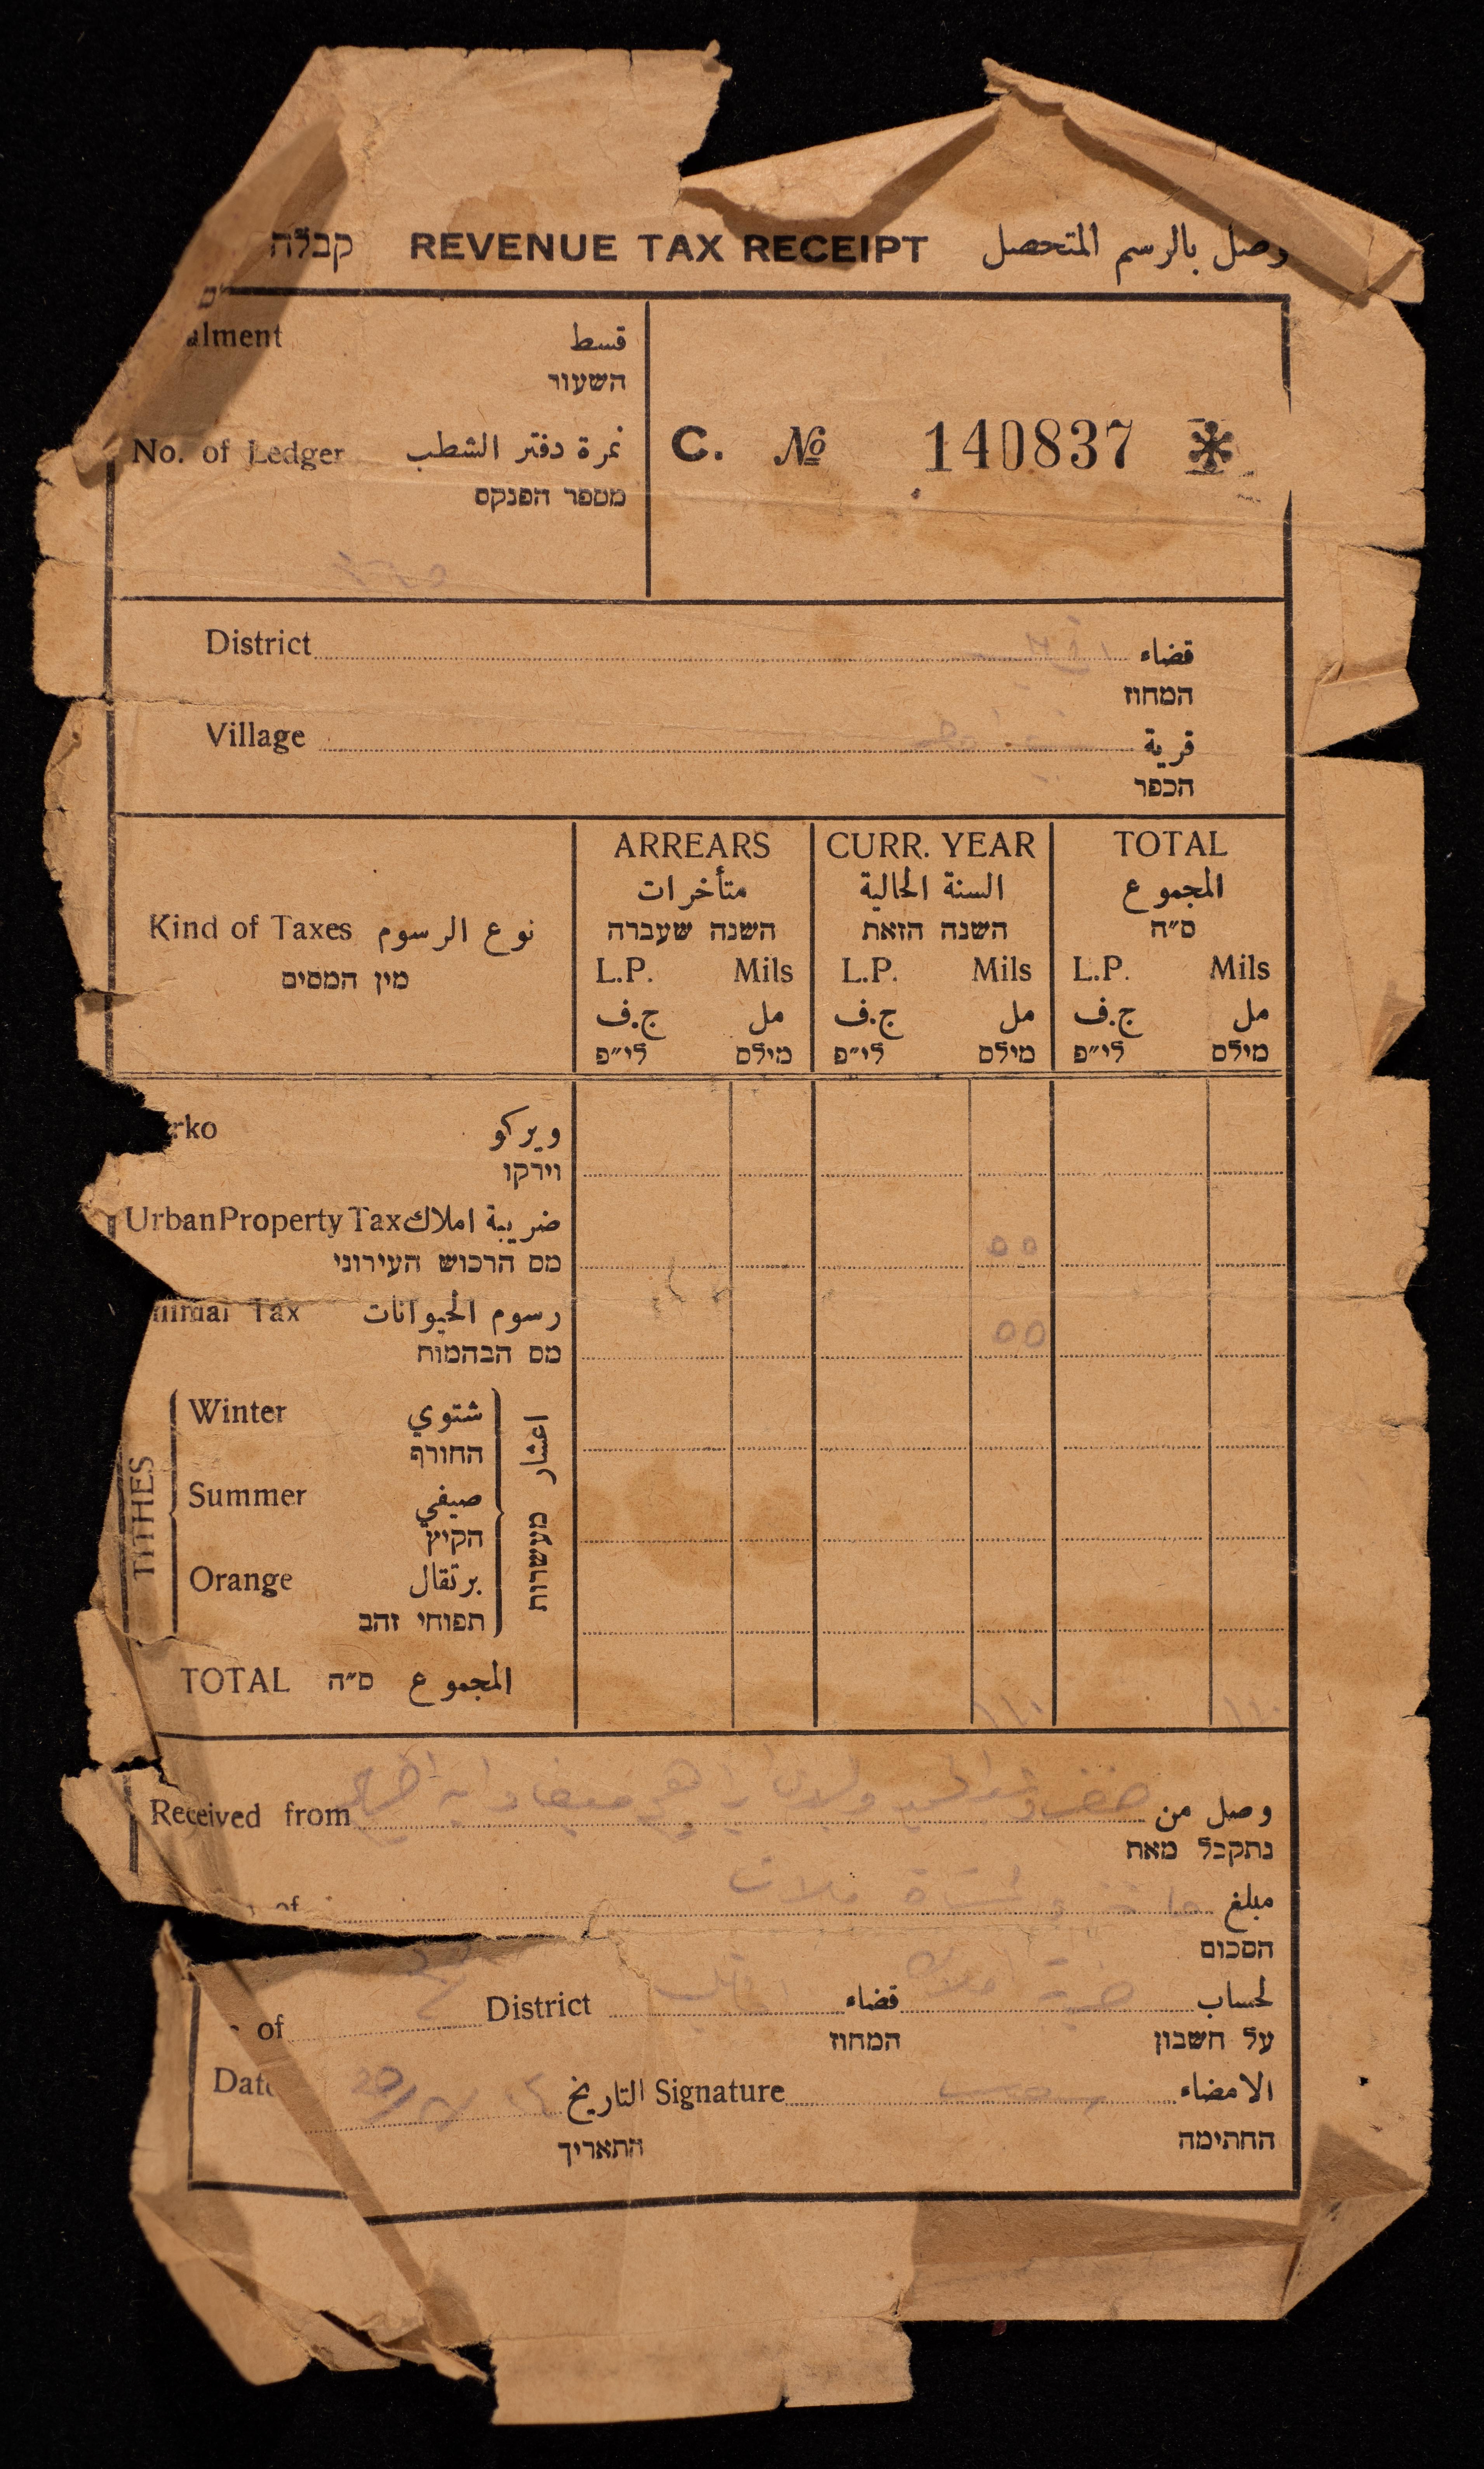 קבלה REVENUE TAX RECEIPT وصل بالرسم المتحصل
alment قسط
השעור
No. of Ledger نمرة دفتر الشطب
מספר הפנקס
C. № 140837 *
District قضاء
המחוז
Village قرية
הכפר
Kind of Taxes نوع الرسوم
מין המסים
ARREARS
متأخرات
השנה שעברה
L.P. Mils
ج.ف مل
לי״פ מילם
CURR. YEAR
السنة الحالية
השנה הזאת
L.P. Mils
ج.ف مل
לי״פ מילם
TOTAL
المجموع
ס״ה
L.P. Mils
ج.ف مل
לי״פ מילם
rko ويركو
וירקו
Urban Property Tax ضريبة املاك
מס הרכוש העירוני
٥٥
nimal Tax رسوم الحيوانات
מס הבהמות
٥٥
TITHES
Winter شتوي
החורף
Summer صيفي
הקיץ
Orange برتقال
תפוחי זהב
اعشار מעשרות
TOTAL ס״ה المجموع
١١٠ ١١٠
Received from وصل من
נתקבל מאת
of مبلغ
הסכום
of District قضاء ضريبة املاك لحساب
המחוז על חשבון
Date التاريخ Signature الامضاء
התאריך החתימה